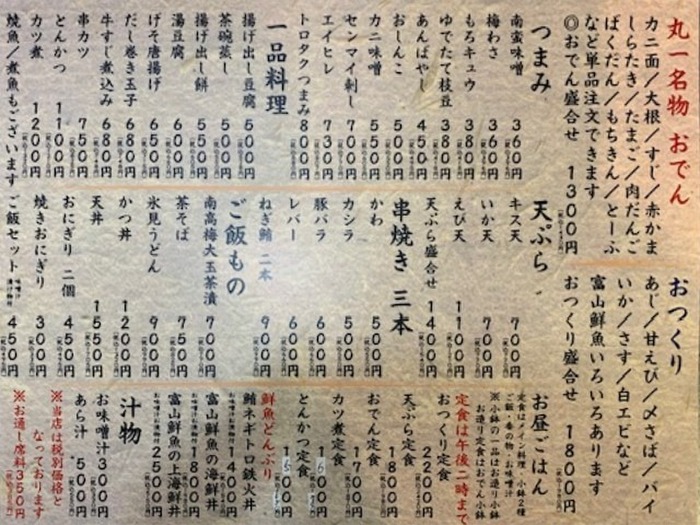 丸一名物 おでん
カニ面／大根／すじ／赤かま
しらたき／たまご／肉だんご
ばくだん／もちきん／とーふ
など単品注文できます
◎おでん盛合せ 1300円
つまみ
南蛮味噌 360円
梅わさ 360円
もろキュウ 380円
ゆでたて枝豆 380円
あんばやし 450円
おしんこ 500円
カニ味噌 550円
センマイ刺し 700円
エイヒレ 730円
トロタクつまみ 800円
一品料理
揚げ出し豆腐 500円
茶碗蒸し 500円
揚げ出し餅 550円
湯豆腐 600円
げそ唐揚げ 650円
だし巻き玉子 680円
牛すじ煮込み 680円
串カツ 750円
とんかつ 1100円
カツ煮 1200円
焼魚／煮魚もございます
おつくり
あじ／甘えび／〆さば／バイ
いか／さす／白エビなど
富山鮮魚いろいろあります
おつくり盛合せ 1800円
天ぷら
キス天 700円
いか天 700円
えび天 1100円
天ぷら盛合せ 1400円
串焼き 三本
かわ 500円
カシラ 500円
豚バラ 600円
レバー 600円
ねぎ鮪 二本 900円
ご飯もの
南高梅大玉茶漬 700円
茶そば 750円
氷見うどん 900円
かつ丼 1200円
天丼 1550円
おにぎり 二個 450円
焼きおにぎり 300円
ご飯セット 450円
お昼ごはん
定食はメイン料理・小鉢2種
ご飯・香の物・お味噌汁
※小鉢の一品はお造り小鉢
お造り定食はおでん小鉢
定食は午後二時まで
おつくり定食 2200円
天ぷら定食 1800円
おでん定食 1700円
カツ煮定食 1700円
とんかつ定食 1600円
鮮魚どんぶり
鮪ネギトロ鉄火丼 1400円
富山鮮魚の海鮮丼 1800円
富山鮮魚の上海鮮丼 2500円
汁物
お味噌汁 300円
あら汁 500円
※当店は税別価格と
なっております
※お通し席料350円